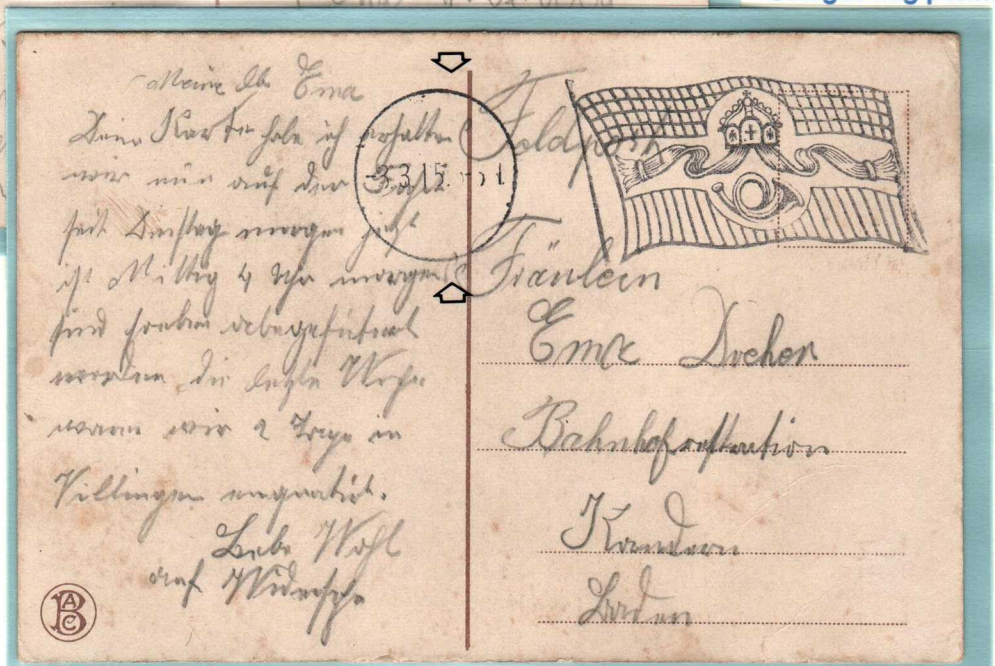 Meine lb. Ema
Deine Karte habe ich erhalten
wir nun auf der
seit Dienstag morgen jetzt
ist Mittag 4 Uhr morgen
sind soeben abgefüttert
worden, die letzte Woche
waren wir 2 Tage in
Villingen
Lebe Wohl
auf Widersehn
-3.3.15. 5-
Feldpost
Fräulein
Ema Dreher
Bahnhofrestauration
Kandern
Baden
BAC